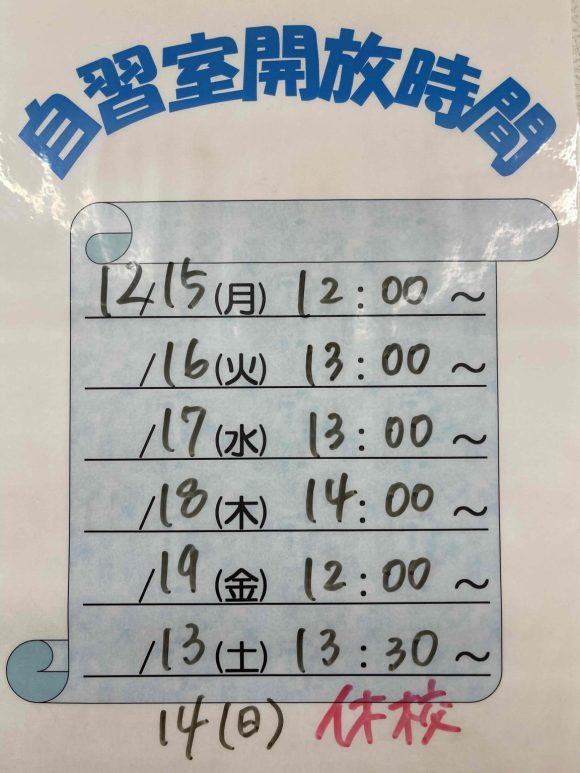 自習室開放時間
12/15(月) 12:00～
/16(火) 13:00～
/17(水) 13:00～
/18(木) 14:00～
/19(金) 12:00～
/13(土) 13:30～
14(日) 休校